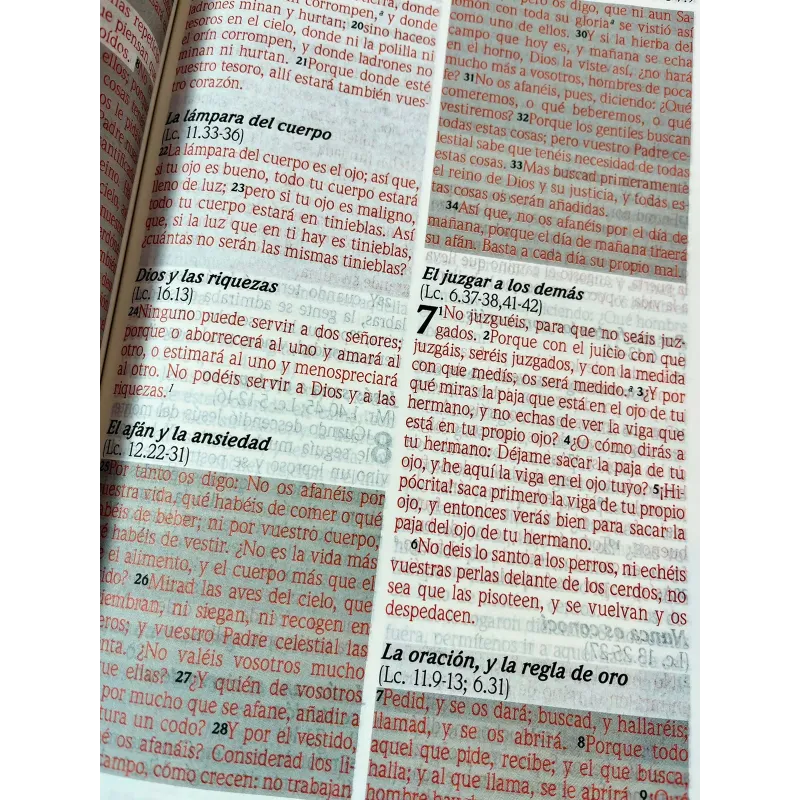 ladrones minan y hurtan; 20sino haceos
tesoros en el cielo, donde ni la polilla ni
orín corrompen, y donde ladrones no
minan ni hurtan. 21Porque donde esté
vuestro tesoro, allí estará también vues-
tro corazón.
La lámpara del cuerpo
(Lc. 11.33-36)
22La lámpara del cuerpo es el ojo; así que,
si tu ojo es bueno, todo tu cuerpo estará
lleno de luz; 23pero si tu ojo es maligno,
todo tu cuerpo estará en tinieblas. Así
que, si la luz que en ti hay es tinieblas,
¿cuántas no serán las mismas tinieblas?
Dios y las riquezas
(Lc. 16.13)
24Ninguno puede servir a dos señores;
porque o aborrecerá al uno y amará al
otro, o estimará al uno y menospreciará
al otro. No podéis servir a Dios y a las
riquezas.
El afán y la ansiedad
(Lc. 12.22-31)
25Por tanto os digo: No os afanéis por
vuestra vida, qué habéis de comer o qué
habéis de beber; ni por vuestro cuerpo,
qué habéis de vestir. ¿No es la vida más
que el alimento, y el cuerpo más que el
vestido? 26Mirad las aves del cielo, que
no siembran, ni siegan, ni recogen en
graneros; y vuestro Padre celestial las
alimenta. ¿No valéis vosotros mucho
más que ellas? 27¿Y quién de vosotros
podrá, por mucho que se afane, añadir a
su estatura un codo? 28Y por el vestido,
¿por qué os afanáis? Considerad los li-
rios del campo, cómo crecen: no trabajan
pero os digo, que ni aun Sa-
lomón con toda su gloria a se vistió así
como uno de ellos. 30Y si la hierba del
campo que hoy es, y mañana se echa
en el horno, Dios la viste así, ¿no hará
mucho más a vosotros, hombres de poca
fe? 31No os afanéis, pues, diciendo: ¿Qué
comeremos, o qué beberemos, o qué
vestiremos? 32Porque los gentiles buscan
todas estas cosas; pero vuestro Padre ce-
lestial sabe que tenéis necesidad de todas
estas cosas. 33Mas buscad primeramente
el reino de Dios y su justicia, y todas es-
tas cosas os serán añadidas.
34Así que, no os afanéis por el día de
mañana, porque el día de mañana traerá
su afán. Basta a cada día su propio mal.
El juzgar a los demás
(Lc. 6.37-38,41-42)
7 1No juzguéis, para que no seáis juz-
gados. 2Porque con el juicio con que
juzgáis, seréis juzgados, y con la medida
con que medís, os será medido.a 3¿Y por
qué miras la paja que está en el ojo de tu
hermano, y no echas de ver la viga que
está en tu propio ojo? 4¿O cómo dirás a
tu hermano: Déjame sacar la paja de tu
ojo, y he aquí la viga en el ojo tuyo? 5¡Hi-
pócrita! saca primero la viga de tu propio
ojo, y entonces verás bien para sacar la
paja del ojo de tu hermano.
6No deis lo santo a los perros, ni echéis
vuestras perlas delante de los cerdos, no
sea que las pisoteen, y se vuelvan y os
despedacen.
La oración, y la regla de oro
(Lc. 11.9-13; 6.31)
7Pedid, y se os dará; buscad, y hallaréis;
llamad, y se os abrirá. 8Porque todo
aquel que pide, recibe; y el que busca,
halla; y al que llama, se le abrirá. 9¿Qué